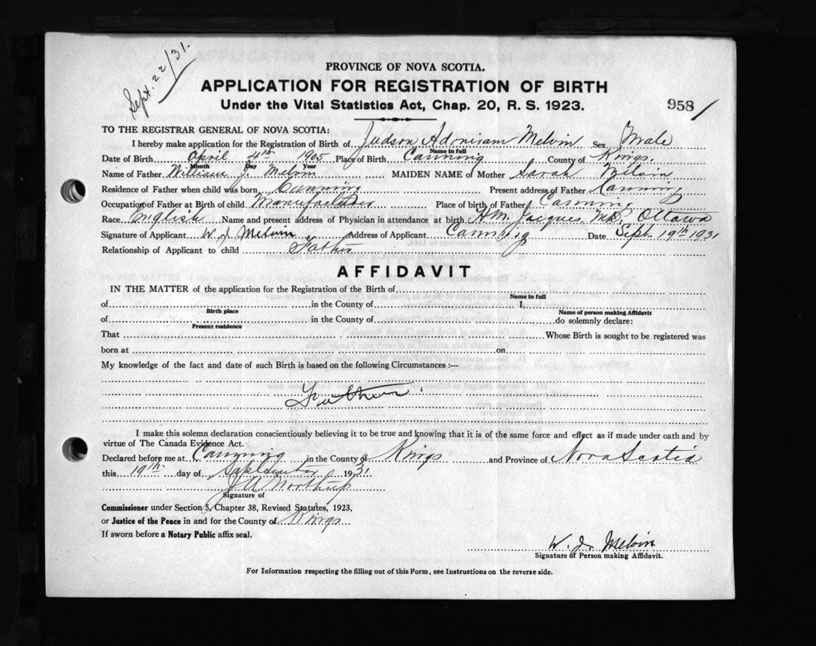 Sept. 22/31.
PROVINCE OF NOVA SCOTIA.
APPLICATION FOR REGISTRATION OF BIRTH
Under the Vital Statistics Act, Chap. 20, R. S. 1923.
958
TO THE REGISTRAR GENERAL OF NOVA SCOTIA:
I hereby make application for the Registration of Birth of Judson Adoniram Melvin Sex Male
Name in full
Date of Birth April 4th 1905 Place of Birth Canning County of Kings.
Month Day Year
Name of Father William J. Melvin MAIDEN NAME of Mother Sarah Melvin
Residence of Father when child was born Canning Present address of Father Canning
Occupation of Father at Birth of child Manufacturer Place of birth of Father Canning
Race English Name and present address of Physician in attendance at birth H.M. Jacques M.D, Ottawa
Signature of Applicant W. J. Melvin Address of Applicant Canning Date Sept 19th 1931
Relationship of Applicant to child Father
AFFIDAVIT
IN THE MATTER of the application for the Registration of the Birth of
Name in full
of in the County of I,
Birth place Name of person making Affidavit
of in the County of do solemnly declare:
Present residence
That Whose Birth is sought to be registered was
born at on
My knowledge of the fact and date of such Birth is based on the following Circumstances :—
Father.
I make this solemn declaration conscientiously believing it to be true and knowing that it is of the same force and effect as if made under oath and by
virtue of The Canada Evidence Act.
Declared before me at Canning in the County of Kings and Province of Nova Scotia
this 19th day of September 1931
J A Northup
Signature of
Commissioner under Section 5, Chapter 38, Revised Statutes, 1923,
or Justice of the Peace in and for the County of Kings
If sworn before a Notary Public affix seal.
W. J. Melvin
Signature of Person making Affidavit.
For Information respecting the filling out of this Form, see Instructions on the reverse side.